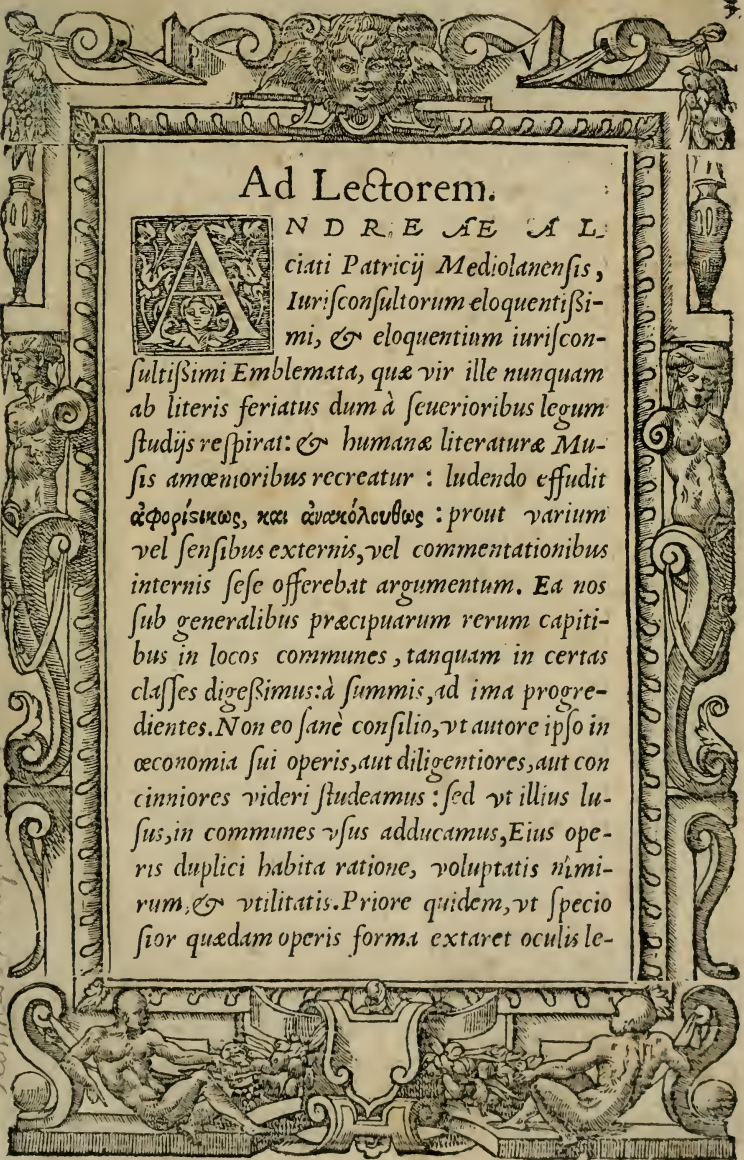 3
P V
Ad Lectorem.
ANDREÆ AL
ciati Patricij Mediolanenſis,
Iuriſconſultorum eloquentißi-
mi, & eloquentium iuriſcon-
ſultißimi Emblemata, quæ vir ille nunquam
ab literis feriatus dum à ſeuerioribus legum
ſtudijs reſpirat: & humanæ literaturæ Mu-
ſis amœnioribus recreatur : ludendo effudit
ἀφορίςικως, και ἀνακόλουθως : prout varium
vel ſenſibus externis, vel commentationibus
internis ſeſe offerebat argumentum. Ea nos
ſub generalibus præcipuarum rerum capiti-
bus in locos communes, tanquam in certas
claſſes digeßimus: à ſummis, ad ima progre-
dientes. Non eo ſanè conſilio, vt autore ipſo in
œconomia ſui operis, aut diligentiores, aut con
cinniores videri ſtudeamus : ſed vt illius lu-
ſus, in communes vſus adducamus, Eius ope-
ris duplici habita ratione, voluptatis nimi-
rum, & vtilitatis. Priore quidem, vt ſpecio
ſior quædam operis forma extaret oculis le-